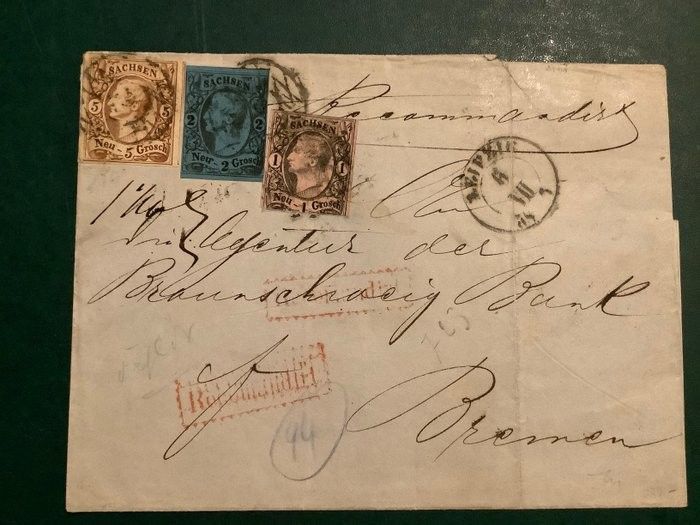 SACHSEN
5 5
Neu - 5 Grosch
SACHSEN
2 2
Neu - 2 Grosch
SACHSEN
1 1
Neu - 1 Grosch
Recommandirt
LEIPZIG
6
VII
An
die Agentur der
Braunschweig. Bank
Recommandirt
Bremen
Recommandirt
44